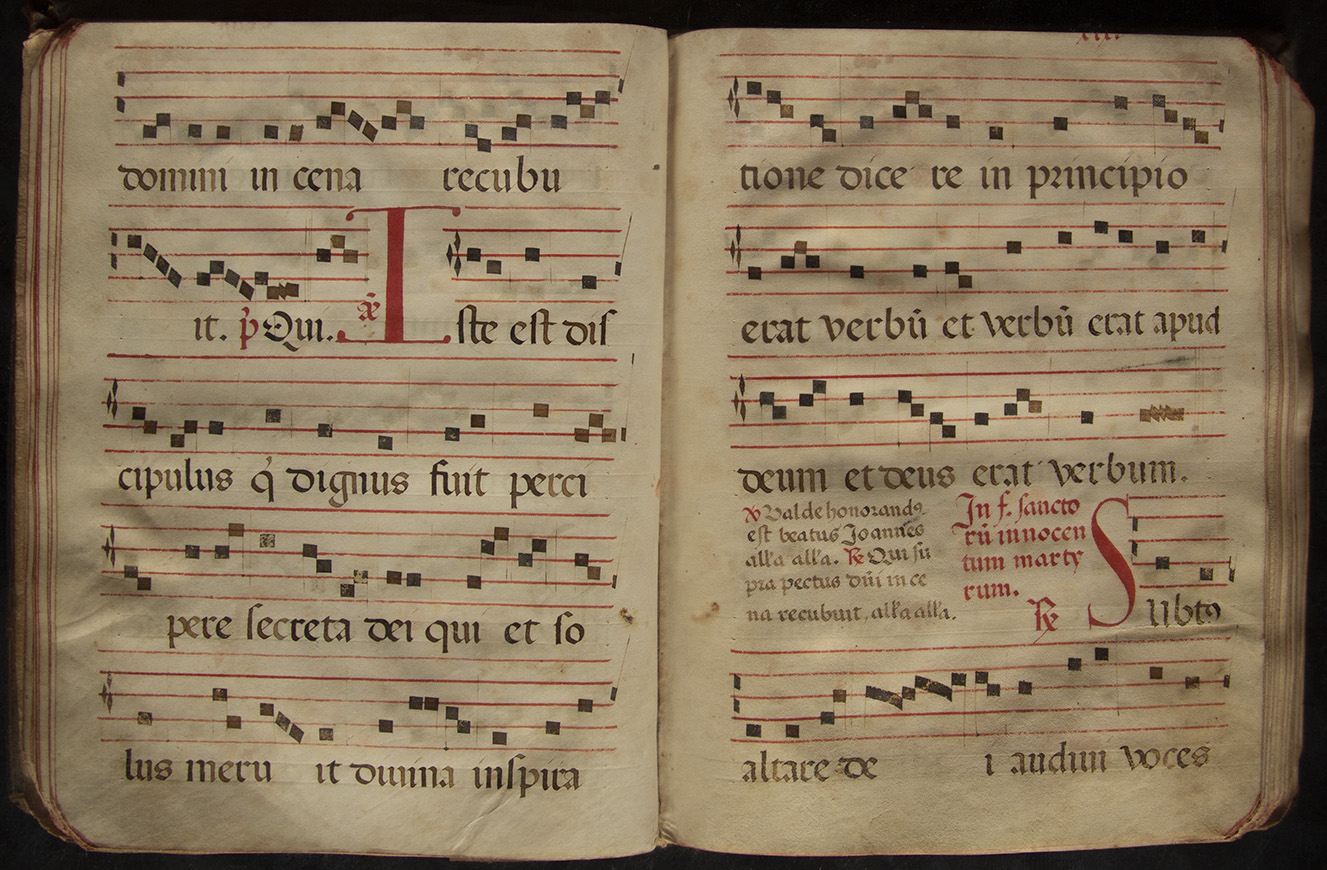 domini in cena recubu
it. p̃ Qui. añ Iste est dis
cipulus q̃ dignus fuit perci
pere secreta dei qui et so
lus meru it diuina inspira
xix.
tione dice re in principio
erat verbũ et verbũ erat apud
deum et deus erat verbum.
℣ Valde honorandꝰ
est beatus Joannes
alľa alľa. ℟ Qui su
pra pectus dñi in ce
na recubuit, alľa alľa.
In f. sancto
rũ innocen
tum marty
rum.
℟ Subtꝰ
altare de i audiui voces